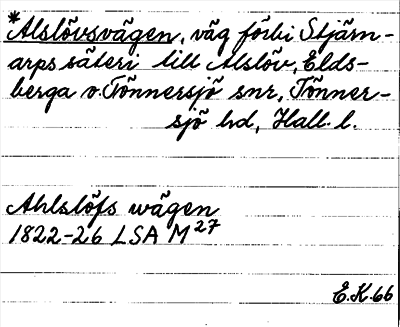 *Alslövsvägen, väg förbi Stjärn-
arps säteri till Alslöv, Elds-
berga o. Tönnersjö snr, Tönner-
sjö hd, Hall. l.
Ahlslöfs wägen
1822-26 LSA M27
E.K. 66